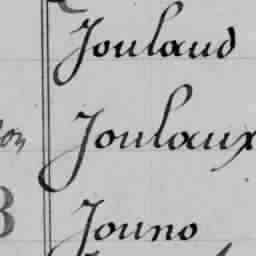 Joulaud
Joulaux
Jouno